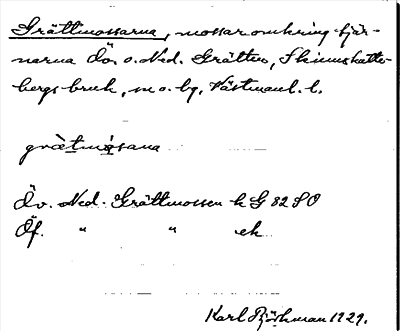 Grättmossarna, mossar omkring tjär-
narna Öv. o. Ned. Grätten, Skinnskatte-
bergs bruk, sn o. bg, Västmanl. l.
grätmósana
Öv. Ned. Grättmossen k G 82 SO
Öf. " " ek
Karl Björkman 1929.